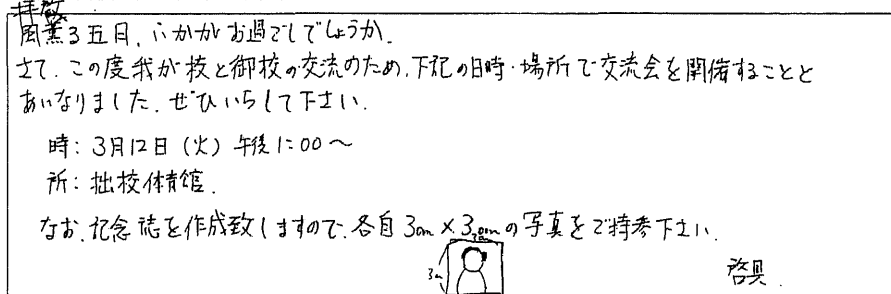 拝啓
風薫る五日、いかがお過ごしでしょうか.
さて、この度我が校と御校の交流のため、下記の日時・場所で交流会を開催することと
あいなりました. ぜひいらして下さい.
時: 3月12日 (火) 午後1:00~
所: 拙校体育館.
なお、記念誌を作成致しますので、各自3cm×3cmの写真をご持参下さい.
3cm
3cm
啓具.